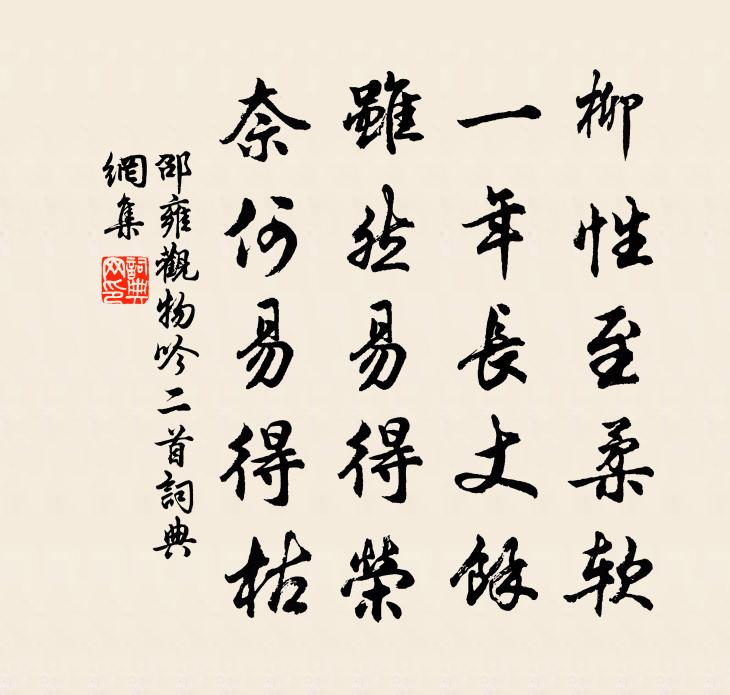 柳性至柔軟
一年長丈餘
雖然易得榮
奈何易得枯
邵雍觀物吟二首詞典
網集
詞典
网印